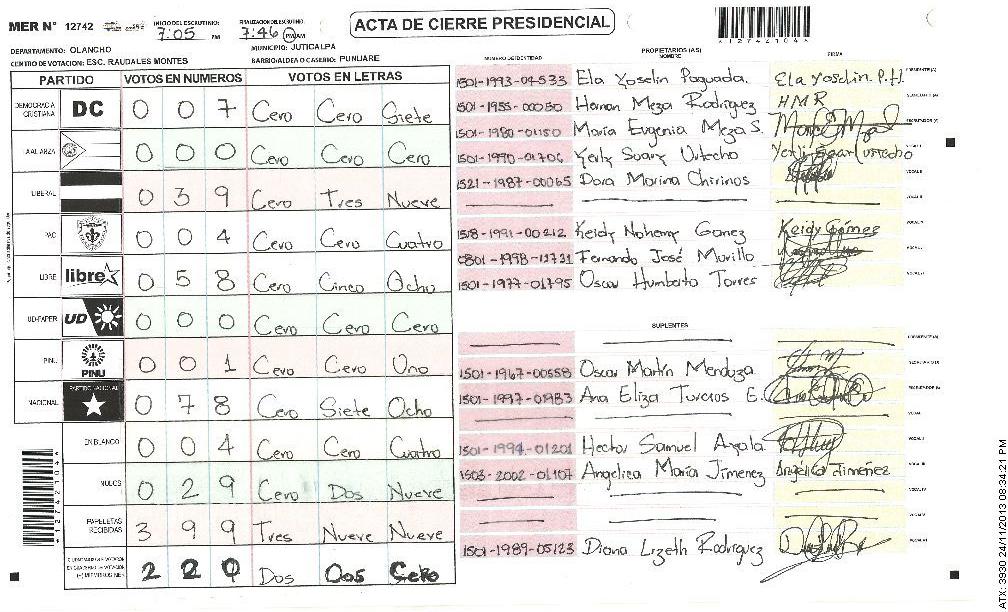 MER Nº 12742
INICIO DEL ESCRUTINIO: 7:05 PM
FINALIZACION DEL ESCRUTINIO: 7:46 PM/AM
ACTA DE CIERRE PRESIDENCIAL
*12742104*
DEPARTAMENTO: OLANCHO
MUNICIPIO: JUTICALPA
CENTRO DE VOTACION: ESC. RAUDALES MONTES
BARRIO/ALDEA O CASERIO: PUNUARE
PARTIDO VOTOS EN NUMEROS VOTOS EN LETRAS
DEMOCRACIA CRISTIANA DC 0 0 7 Cero Cero Siete
ALIANZA 0 0 0 Cero Cero Cero
LIBERAL 0 3 9 Cero Tres Nueve
PAC 0 0 4 Cero Cero Cuatro
LIBRE libre 0 5 8 Cero Cinco Ocho
UD-FAPER UD 0 0 0 Cero Cero Cero
PINU PINU 0 0 1 Cero Cero Uno
NACIONAL PARTIDO NACIONAL 0 7 8 Cero Siete Ocho
EN BLANCO 0 0 4 Cero Cero Cuatro
NULOS 0 2 9 Cero Dos Nueve
PAPELETAS RECIBIDAS 3 9 9 Tres Nueve Nueve
2 2 0 Dos Dos Cero
*12742104*
NUMERO DE IDENTIDAD PROPIETARIOS (AS) NOMBRE FIRMA
1501-1993-04533 Ela Yoselin Paguada. Ela Yoselin P.H.
1501-1955-00050 Hernan Meza Rodriguez HMR
1501-1980-01150 Maria Eugenia Meza S.
1501-1990-01706 Yerly Suany Urtecho
1521-1987-00065 Dora Marina Chirinos
1518-1991-00212 Keidy Nohemy Gomez Keidy Gómez
0801-1998-12721 Fernando José Murillo
1501-1977-01795 Oscar Humberto Torres
SUPLENTES
1501-1967-00558 Oscar Martín Mendoza
1501-1997-01983 Ana Eliza Turcios E.
1501-1994-01201 Hector Samuel Ayala
1503-2002-01107 Angelica María Jimenez Angélica Jiménez
1501-1989-05123 Diana Lizeth Rodriguez
ATX: 3930 24/11/2013 08:34:21 PM